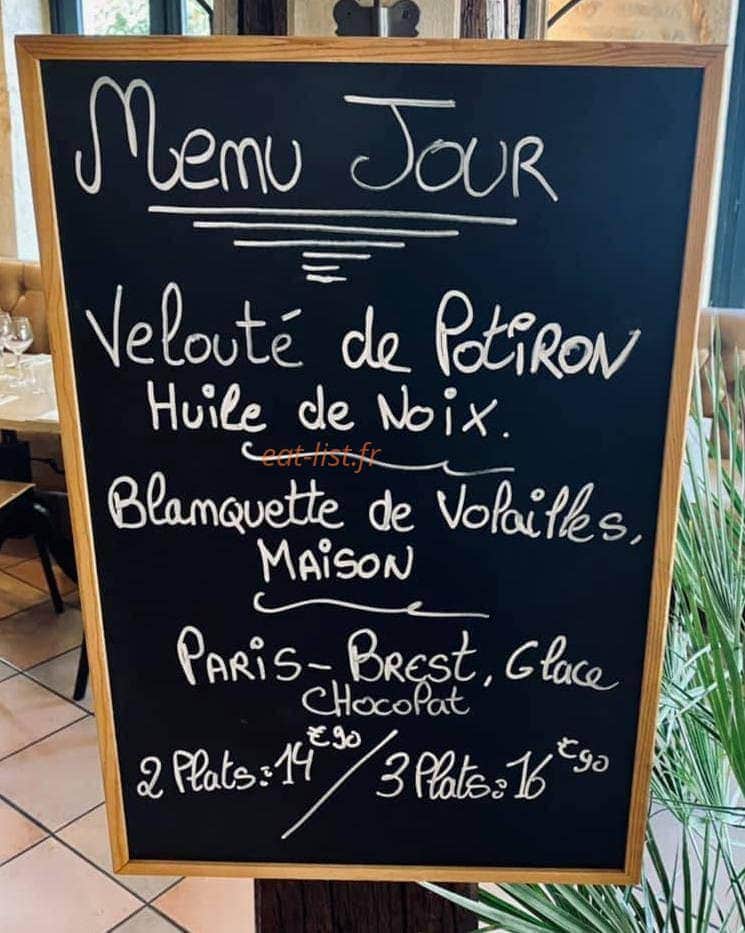 Menu Jour
Velouté de Potiron
Huile de Noix.
eat-list.fr
Blanquette de Volailles,
Maison
Paris-Brest, Glace
Chocolat
2 Plats: 14€90 / 3 Plats: 16€90